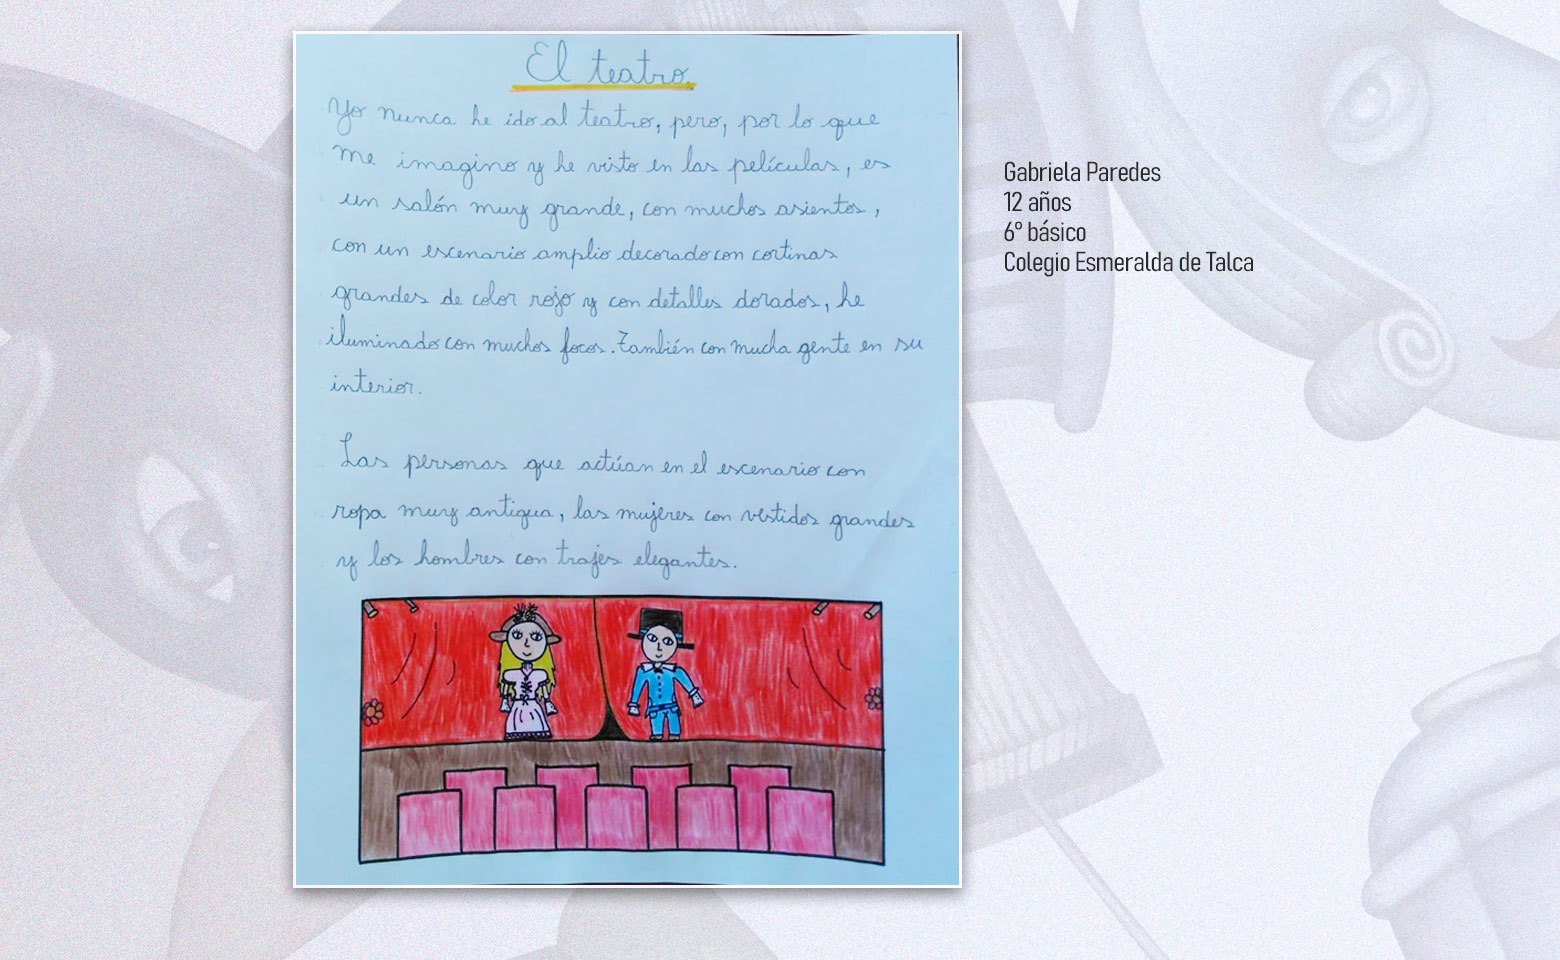 El teatro
Yo nunca he ido al teatro, pero, por lo que
me imagino y he visto en las películas, es
un salón muy grande, con muchos asientos,
con un escenario amplio decorado con cortinas
grandes de color rojo y con detalles dorados, he
iluminado con muchos focos. También con mucha gente en su
interior.
Las personas que actúan en el escenario con
ropa muy antigua, las mujeres con vestidos grandes
y los hombres con trajes elegantes.
Gabriela Paredes
12 años
6° básico
Colegio Esmeralda de Talca